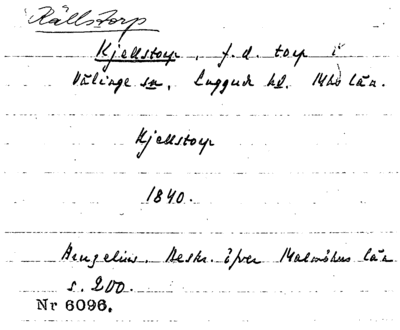 Källstorp
Kjellstorp, f.d. torp i
Välinge sn, Luggude hd. Mlhs län.
Kjellstorp
1840.
Bengelius. Beskr. öfver Malmöhus län
s. 200.
Nr 6096.